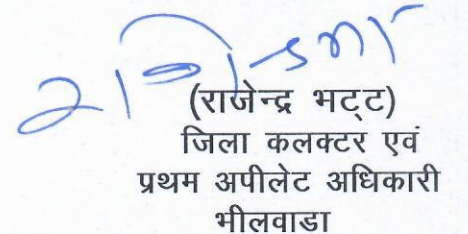 (राजेन्द्र भट्ट)
जिला कलक्टर एवं
प्रथम अपीलेट अधिकारी
भीलवाडा